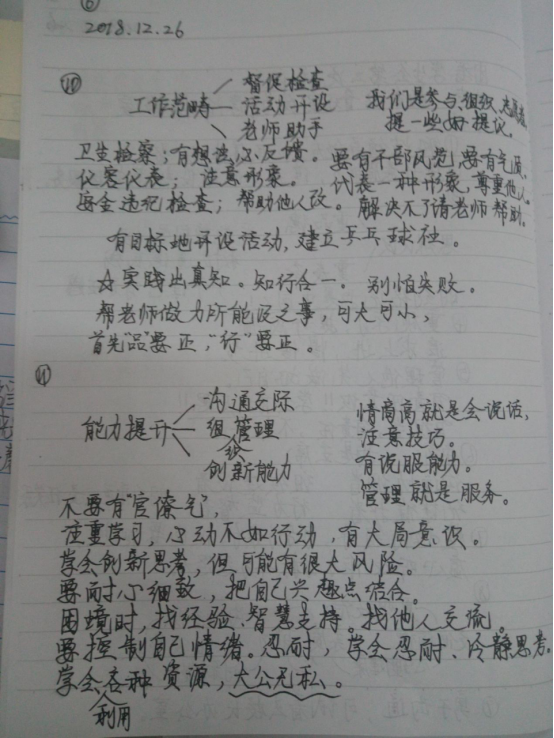 ⑥
2018.12.26
⑩
督促检查
工作范畴 活动开设 我们是参与、组织、志愿者
老师助手 提一些好提议。
卫生检察；有想法，必反馈。要有干部风范，要有气质，
仪容仪表；注意形象。代表一种形象，尊重他人。
安全违犯检查；帮助他人改。解决不了请老师帮助。
有目标地开设活动，建立乒乓球社。
☆实践出真知。知行合一。别怕失败。
帮老师做力所能及之事，可大可小，
首先“品”要正，“行”要正。
⑪
沟通交际 情商高就是会说话，
能力提升 组织管理 注意技巧。
创新能力 有说服能力。
管理就是服务。
不要有“官僚气”，
注重学习，心动不如行动，有大局意识。
学会创新思考，但可能有很大风险。
要耐心细致，把自己兴趣点结合。
困境时，找经验、智慧支持。找他人交流。
要控制自己情绪。忍耐，学会忍耐、冷静思考。
学会利用各种资源，大公无私。